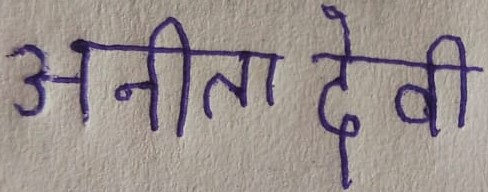 अनीता देवी